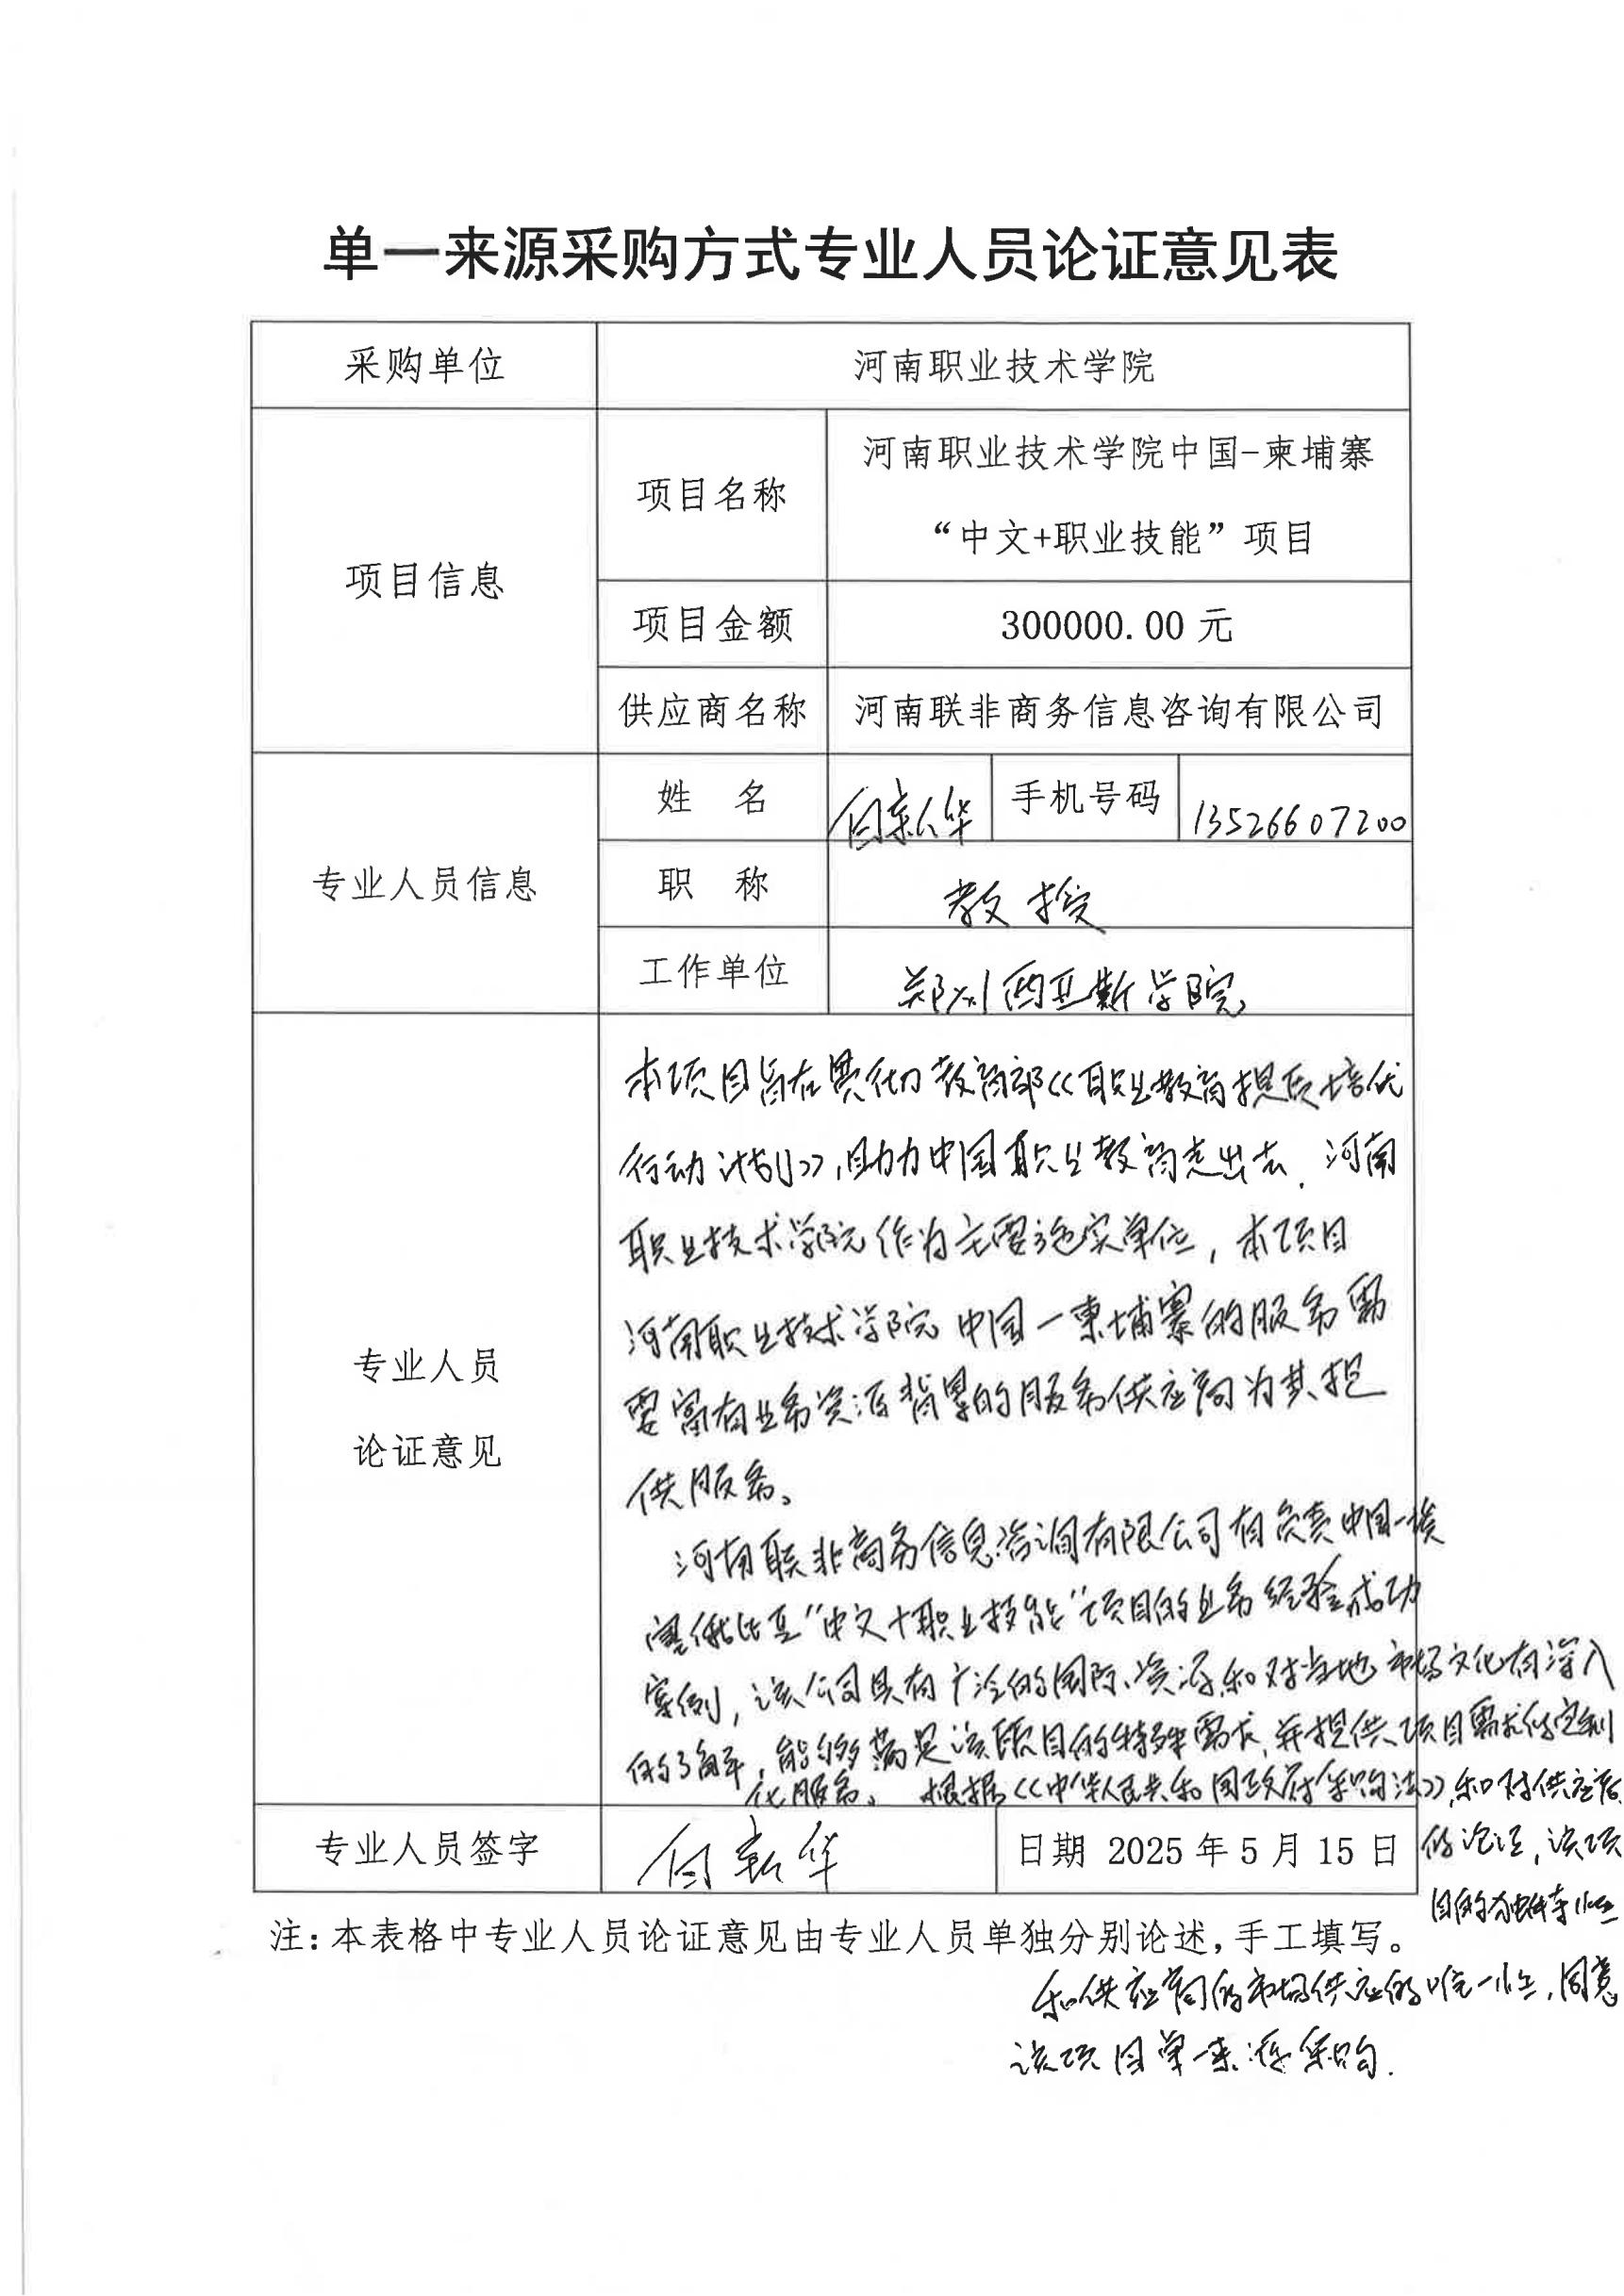 单一来源采购方式专业人员论证意见表
采购单位 河南职业技术学院
项目信息 项目名称 河南职业技术学院中国-柬埔寨
“中文+职业技能”项目
项目金额 300000.00 元
供应商名称 河南联非商务信息咨询有限公司
专业人员信息 姓 名 华 手机号码 13526607200
职 称 教授
工作单位 郑州西亚斯学院
专业人员
论证意见
本项目旨在贯彻教育部《职业教育提质培优
行动计划》,助力中国职业教育走出去.河南
职业技术学院作为主要施实单位,本项目
河南职业技术学院中国一柬埔寨的服务需
要富有业务资源背景的服务供应商为其提
供服务。
河南联非商务信息咨询有限公司有负责中国-埃
塞俄比亚“中文+职业技能”项目的业务经验成功
案例,该公司具有广泛的国际、资源和对当地市场文化有深入
的了解,能够满足该项目的特殊需求,并提供项目需求的定制
化服务。根据《中华人民共和国政府采购法》,和对供应商
的论证,该项
目的独特性
和供应商的市场供应的唯一性,同意
该项目单一来源采购.
专业人员签字 华 日期 2025 年 5 月 15 日
注:本表格中专业人员论证意见由专业人员单独分别论述,手工填写。